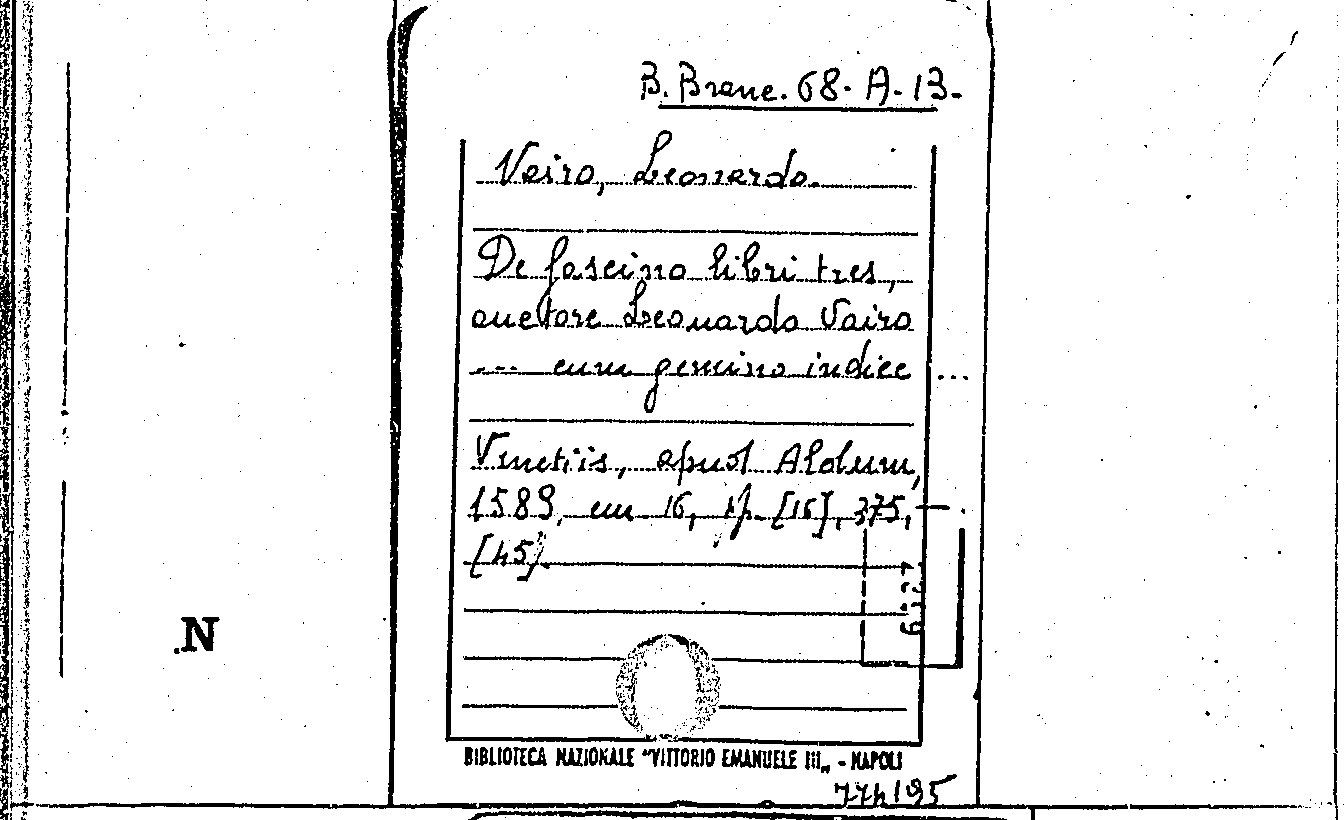 B. Branc. 68. A. 13.
Vairo, Leonardo.
De fascino libri tres,
auctore Leonardo Vairo
... cum gemino indice ...
Venetiis, apud Aldum,
1589, in 16, pp. [16], 375,
[45].
N
BIBLIOTECA NAZIONALE "VITTORIO EMANUELE III„ - NAPOLI